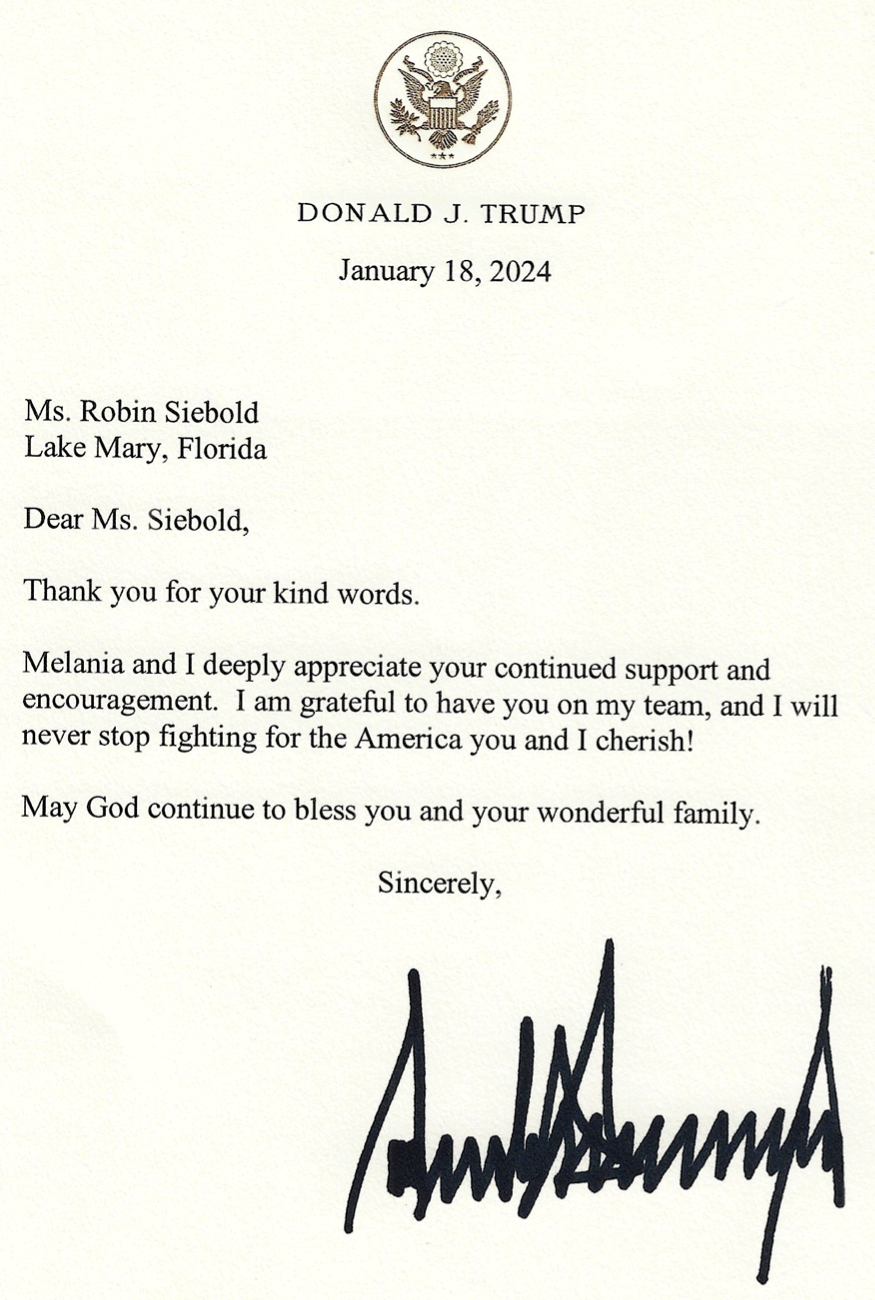 DONALD J. TRUMP
January 18, 2024
Ms. Robin Siebold
Lake Mary, Florida
Dear Ms. Siebold,
Thank you for your kind words.
Melania and I deeply appreciate your continued support and
encouragement.  I am grateful to have you on my team, and I will
never stop fighting for the America you and I cherish!
May God continue to bless you and your wonderful family.
Sincerely,